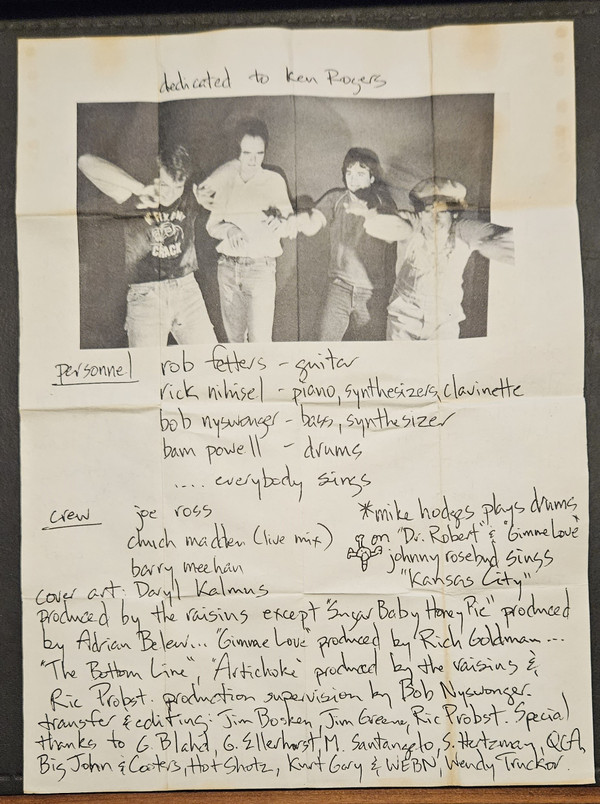 dedicated to Ken Rogers
personnel rob fetters - guitar
rick nihisel - piano, synthesizers, clavinette
bob nyswonger - bass, synthesizer
bam powell - drums
.... everybody sings
crew joe ross
chuck madden (live mix)
barry meehan
*mike hodges plays drums
on "Dr. Robert" & "Gimme Love"
johnny rosebud sings
"Kansas City"
cover art: Daryl Kalmus
produced by the raisins except "Sugar Baby Honey Pie" produced
by Adrian Belew... "Gimme Love" produced by Rich Goldman...
"The Bottom Line", "Artichoke" produced by the raisins &
Ric Probst. production supervision by Bob Nyswonger.
transfer & editing: Jim Bosken, Jim Greene, Ric Probst. Special
thanks to G. Bland, G. Ellerhorst, M. Santangelo, S. Hertzman, QCA,
Big John & Cooters, Hot Shotz, Kurt Gary & WEBN, Wendy Truckor.